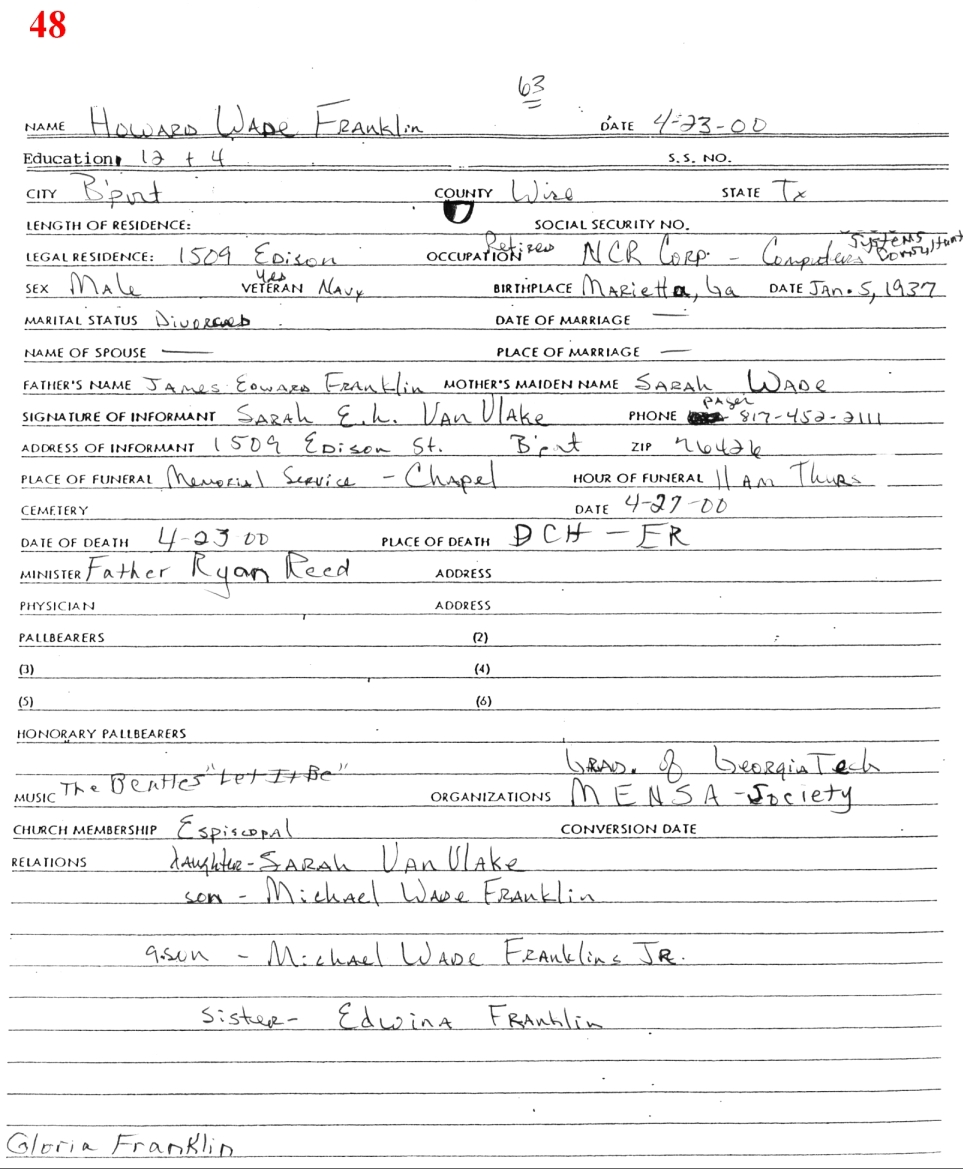 48
63
NAME Howard Wade Franklin DATE 4-23-00
Education: 12 + 4 S.S. NO.
CITY B'port COUNTY Wise STATE Tx
LENGTH OF RESIDENCE: SOCIAL SECURITY NO.
LEGAL RESIDENCE: 1509 Edison OCCUPATION Retired NCR Corp. - Computers Systems Consultant
SEX Male VETERAN Yes Navy BIRTHPLACE Marietta, Ga DATE Jan. 5, 1937
MARITAL STATUS Divorced DATE OF MARRIAGE —
NAME OF SPOUSE — PLACE OF MARRIAGE —
FATHER'S NAME James Edward Franklin MOTHER'S MAIDEN NAME Sarah Wade
SIGNATURE OF INFORMANT Sarah E.h. Van Vlake PHONE pager 817-452-2111
ADDRESS OF INFORMANT 1509 Edison St. B'port ZIP 76426
PLACE OF FUNERAL Memorial Service - Chapel HOUR OF FUNERAL 11 AM Thurs
CEMETERY DATE 4-27-00
DATE OF DEATH 4-23 00 PLACE OF DEATH DCH - ER
MINISTER Father Ryan Reed ADDRESS
PHYSICIAN ADDRESS
PALLBEARERS (2)
(3) (4)
(5) (6)
HONORARY PALLBEARERS
MUSIC The Beatles "Let It Be" ORGANIZATIONS Grad. of Georgia Tech
MENSA - Society
CHURCH MEMBERSHIP Espiscopal CONVERSION DATE
RELATIONS daughter - Sarah Van Vlake
son - Michael Wade Franklin
g.son - Michael Wade Franklins Jr.
sister - Edwina Franklin
Gloria Franklin